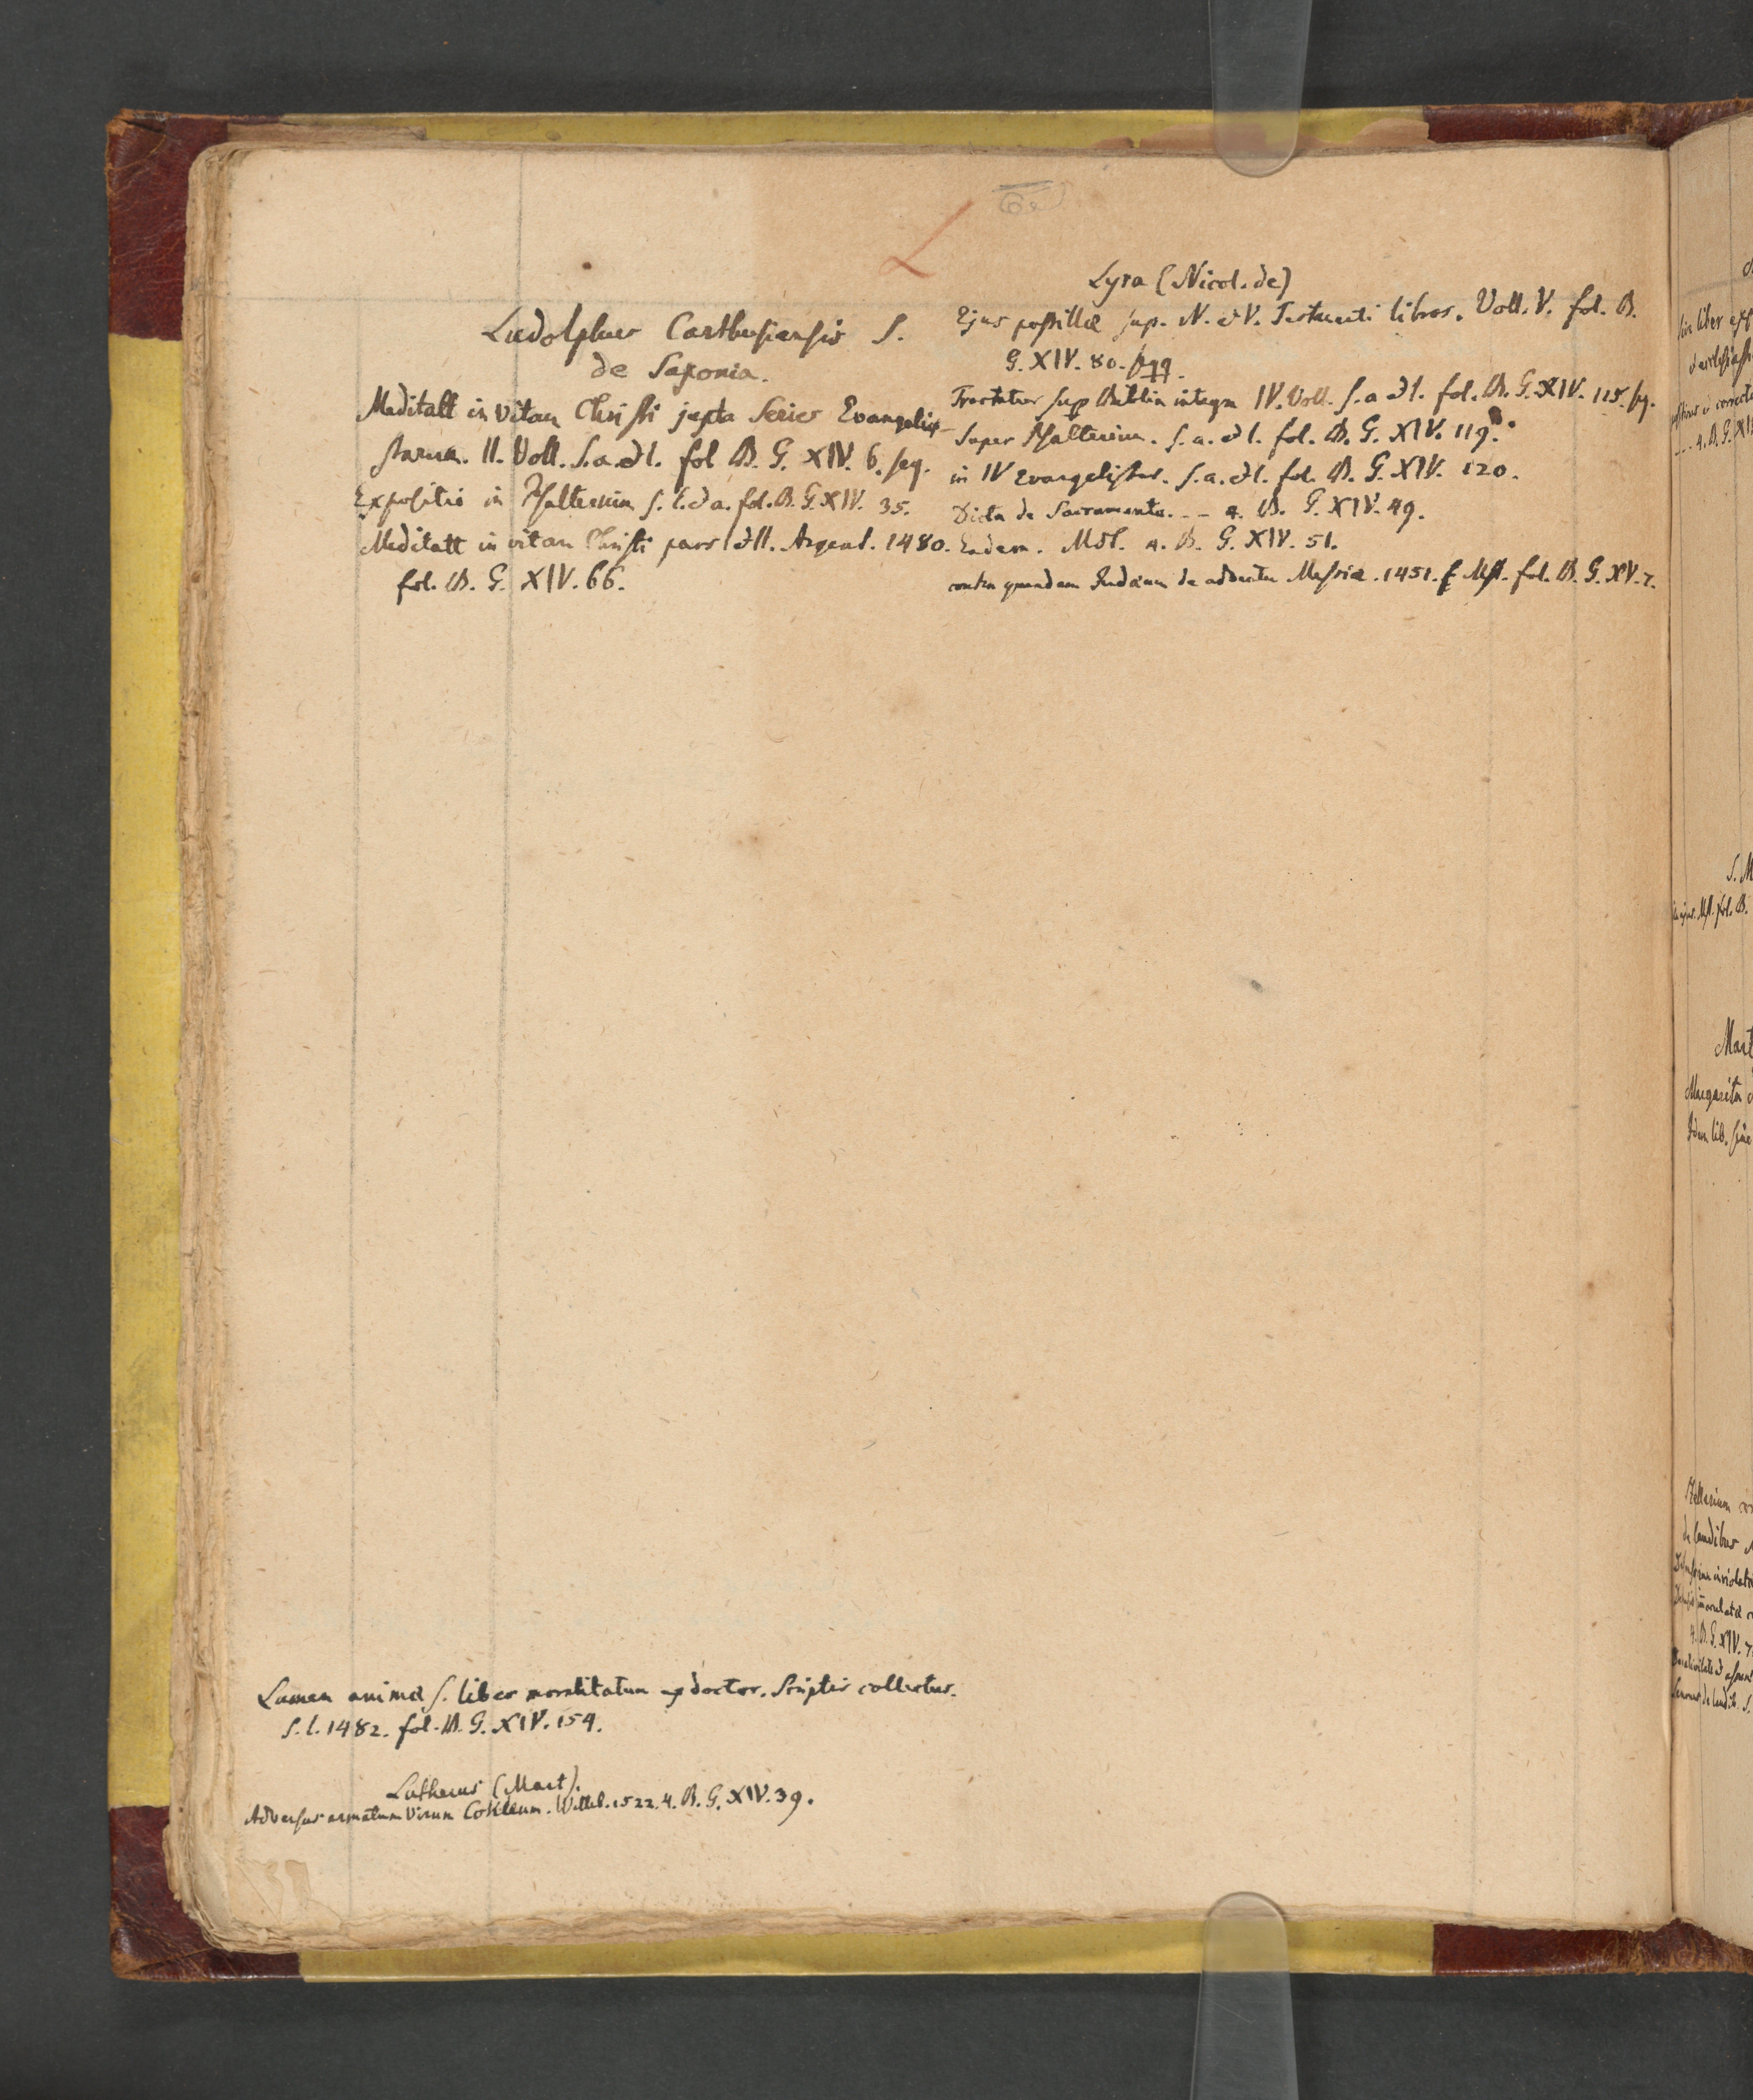 L
Ludolphus Carthusiensis S.
de Saxonia.
Meditatt in vitam Christi juxta Series Evangelist-
starum. II. Voll. S. a. et l. fol B. G. XIV. 6. seq.
Expositio in Psalterium s. l. et a. fol. B. G. XIV. 35.
Meditatt in vitam Christi pars I et II. Argent. 1480.
fol. B. G. XIV. 66.
Lyra (Nicol. de)
Ejus postillae sup. N. et V. Testamenti libros. Voll. V. fol. B.
G. XIV. 80. sqq.
Tractatus sup Biblia integra IV. Voll. s. a et l. fol. B. G. XIV. 115. sq.
Super Psalterium. s. a. et l. fol. B. G. XIV. 119.
in IV Evangelistas. s. a. et l. fol. B. G. XIV. 120.
Dicta de Sacramento. - - 4. B. G. XIV. 49.
Eadem. Mst. 4. B. G. XIV. 51.
contra quendam Judaeum de adventu Messiae. 1451. Mst. fol. B. G. XV. 7.
Lumen animae s. liber moralitatum ex doctor. Scriptis collectus.
S. l. 1482. fol. B. G. XIV. 154.
Lutherus (Mart).
Adversus armatum Virum Cokleum. Witteb. 1522. 4. B. G. XIV. 39.